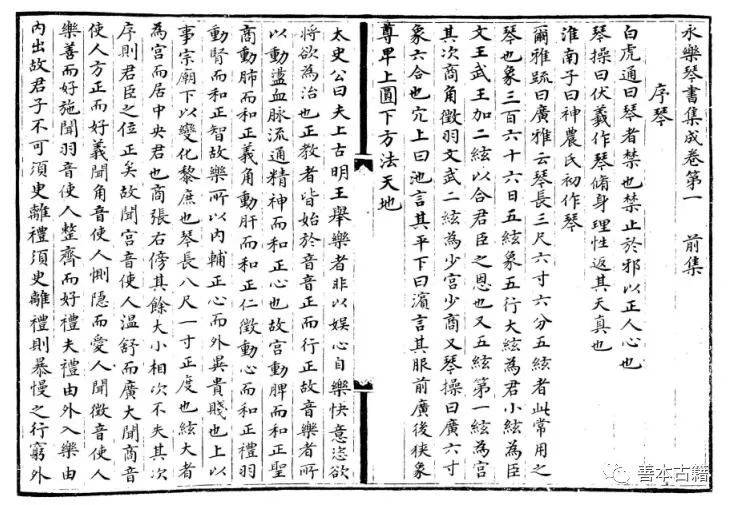 永樂琴書集成卷第一　前集
序琴
白虎通曰琴者禁也禁止於邪以正人心也
琴操曰伏羲作琴脩身理性返其天真也
淮南子曰神農氏初作琴
爾雅疏曰廣雅云琴長三尺六寸六分五絃者此常用之
琴也象三百六十六日五絃象五行大絃為君小絃為臣
文王武王加二絃以合君臣之恩也又五絃第一絃為宮
其次商角徵羽文武二絃為少宮少商又琴操曰廣六寸
象六合也宂上曰池言其平下曰濱言其服前廣後狹象
尊卑上圓下方法天地
太史公曰夫上古明王舉樂者非以娛心自樂快意恣欲
將欲為治也正教者皆始於音音正而行正故音樂者所
以動盪血脉流通精神而和正心也故宮動脾而和正聖
商動肺而和正義角動肝而和正仁徵動心而和正禮羽
動腎而和正智故樂所以內輔正心而外異貴賤也上以
事宗廟下以變化黎庶也琴長八尺一寸正度也絃大者
為宮而居中央君也商張右傍其餘大小相次不失其次
序則君臣之位正矣故聞宮音使人溫舒而廣大聞商音
使人方正而好義聞角音使人惻隱而愛人聞徵音使人
樂善而好施聞羽音使人整齊而好禮夫禮由外入樂由
內出故君子不可須臾離禮須臾離禮則暴慢之行窮外
善本古籍